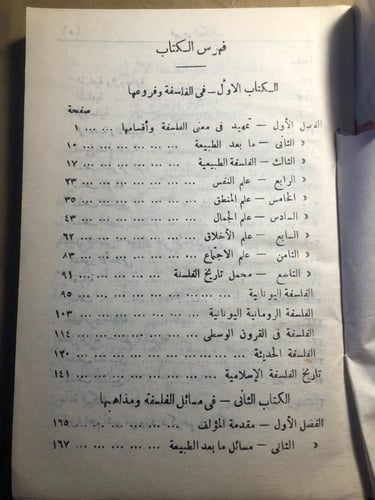 فهرس الكتاب
الكتاب الأول – فى الفلسفة وفروعها
صفحة
الفصل الأول – تمهيد فى معنى الفلسفة وأقسامها ... ... ١
« الثانى – ما بعد الطبيعة ... ... ... ... ... ١٠
« الثالث – الفلسفة الطبيعية ... ... ... ... ... ١٧
« الرابع – علم النفس ... ... ... ... ... ... ٢٣
« الخامس – علم المنطق ... ... ... ... ... ... ٣٥
« السادس – علم الجمال ... ... ... ... ... ... ٤٣
« السابع – علم الأخلاق ... ... ... ... ... ... ٦٢
« الثامن – علم الاجتماع ... ... ... ... ... ... ٨٣
« التاسع – مجمل تاريخ الفلسفة ... ... ... ... ٩١
الفلسفة اليونانية ... ... ... ... ... ... ... ٩٥
الفلسفة الرومانية اليونانية ... ... ... ... ... ١٠٣
الفلسفة فى القرون الوسطى ... ... ... ... ... ١١٤
الفلسفة الحديثة ... ... ... ... ... ... ... ١٢٠
تاريخ الفلسفة الإسلامية ... ... ... ... ... ... ١٤١
الكتاب الثانى – فى مسائل الفلسفة ومذاهبها
الفصل الأول – مقدمة المؤلف ... ... ... ... ... ١٦٥
« الثانى – مسائل ما بعد الطبيعة ... ... ... ... ١٦٧